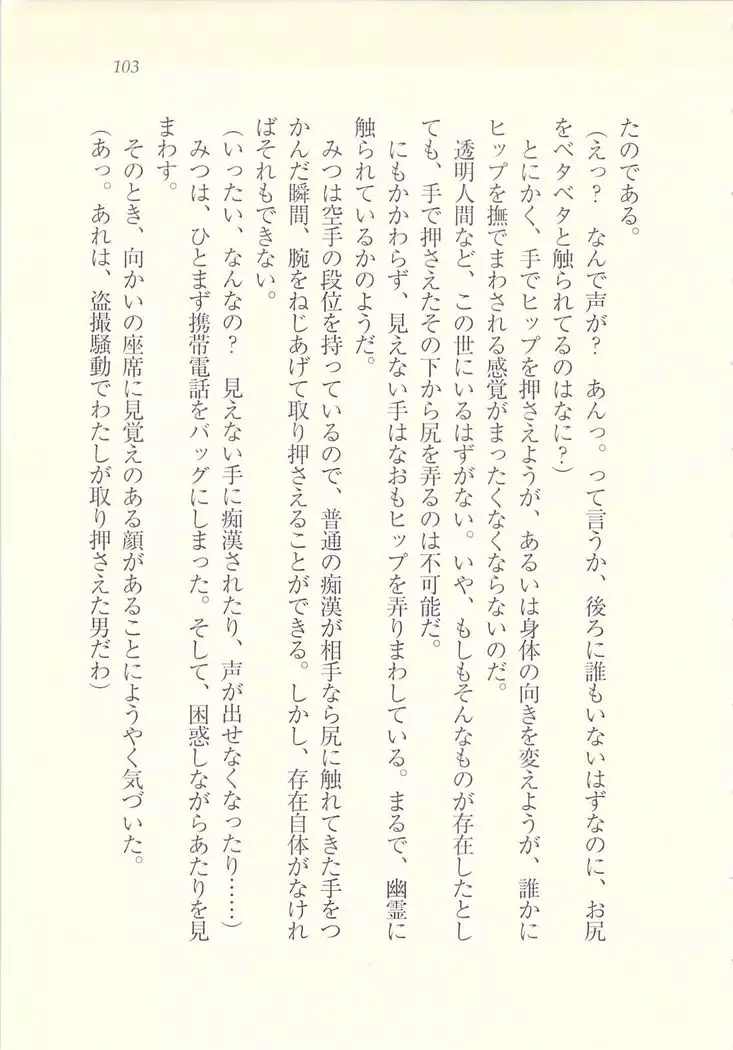 103
たのである。
（えっ？　なんで声が？　あんっ。って言うか、後ろに誰もいないはずなのに、お尻
をベタベタと触られてるのはなに？）
　とにかく、手でヒップを押さえようが、あるいは身体の向きを変えようが、誰かに
ヒップを撫でまわされる感覚がまったくなくならないのだ。
　透明人間など、この世にいるはずがない。いや、もしもそんなものが存在したとし
ても、手で押さえたその下から尻を弄るのは不可能だ。
　にもかかわらず、見えない手はなおもヒップを弄りまわしている。まるで、幽霊に
触られているかのようだ。
　みつは空手の段位を持っているので、普通の痴漢が相手なら尻に触れてきた手をつ
かんだ瞬間、腕をねじあげて取り押さえることができる。しかし、存在自体がなけれ
ばそれもできない。
（いったい、なんなの？　見えない手に痴漢されたり、声が出せなくなったり……）
　みつは、ひとまず携帯電話をバッグにしまった。そして、困惑しながらあたりを見
まわす。
　そのとき、向かいの座席に見覚えのある顔があることにようやく気づいた。
（あっ。あれは、盗撮騒動でわたしが取り押さえた男だわ）